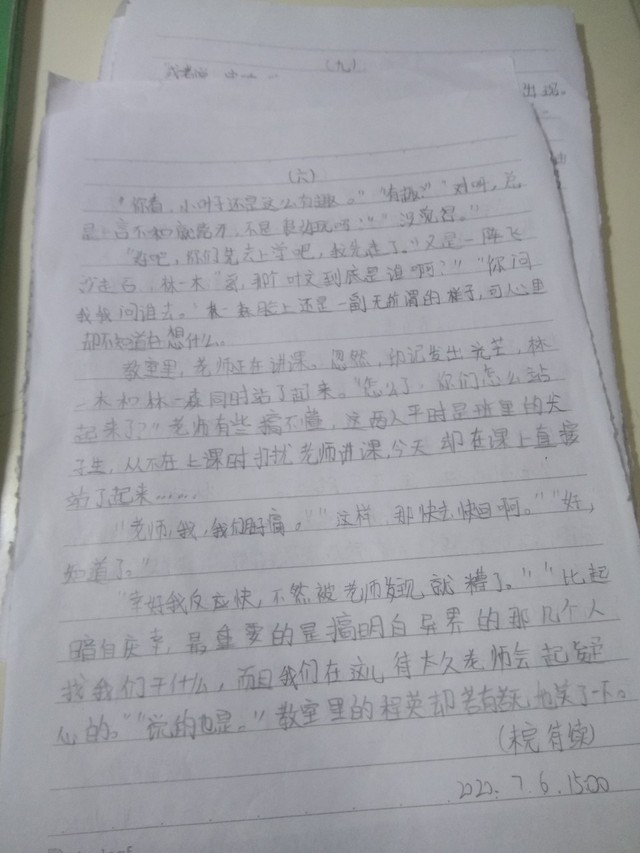 (九)
出现。
(六)
"你看，小叶子还是这么有趣。""有趣？""对啊，总
是一言不和就 ，不是 吗？""没觉得。"
"好吧，你们先去上学吧，我先走了。"又是一阵飞
沙走石，林一木："哥，那个叶文到底是谁啊？""你问
我我问谁去。"林一森脸上还是一副无所谓的样子，可心里
却不知道在想什么。
教室里，老师正在讲课。忽然，印记发出光芒，林
一木和林一森同时站了起来。"怎么了，你们怎么站
起来了？"老师有些搞不懂，这两人平时是班里的尖
子生，从不在上课时打扰老师讲课，今天却在课上直接
站了起来……
"老师，我，我们肚痛。""这样，那快去快回啊。""好，
知道了。"
"幸好我反应快，不然被老师发现就糟了。""比起
暗自庆幸，最重要的是搞明白异界的那几个人
找我们干什么，而且我们在这儿待太久老师会起疑
心的。""说的也是。"教室里的程英却若有若无地笑了一下。
(未完待续)
2020.7.6.15:00